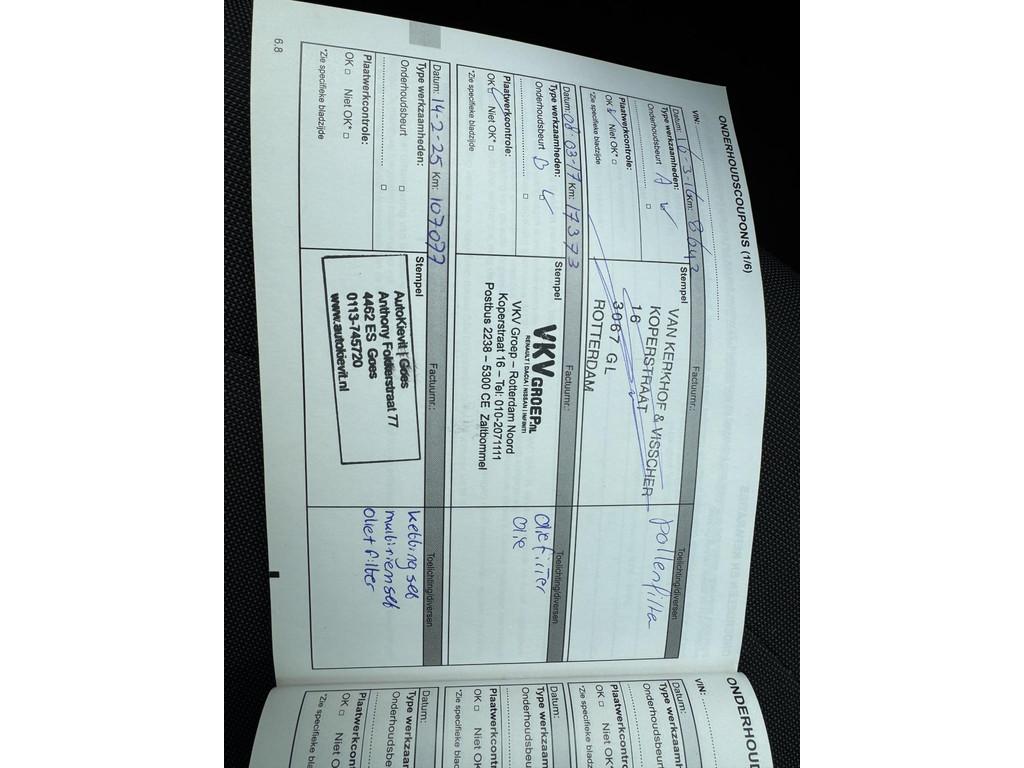 ONDERHOUDSCOUPONS (1/6)
VIN:
Datum: 16-3-16 Km: 8642
Type werkzaamheden:
Onderhoudsbeurt A
Plaatwerkcontrole:
OK Niet OK*
*Zie specifieke bladzijde
Stempel
Factuurnr.:
VAN KERKHOF & VISSCHER
KOPERSTRAAT
16
3067 GL
ROTTERDAM
Toelichting/diversen
pollenfilter
Datum: 08-03-17 Km: 17373
Type werkzaamheden:
Onderhoudsbeurt B
Plaatwerkcontrole:
OK Niet OK*
*Zie specifieke bladzijde
Stempel
Factuurnr.:
VKV GROEP.NL
RENAULT | DACIA | NISSAN | INFINITI
VKV Groep – Rotterdam Noord
Koperstraat 16 – Tel: 010-2071111
Postbus 2238 – 5300 CE Zaltbommel
Toelichting/diversen
oliefilter
olie
Datum: 14-2-25 Km: 107077
Type werkzaamheden:
Onderhoudsbeurt
Plaatwerkcontrole:
OK Niet OK*
*Zie specifieke bladzijde
Stempel
Factuurnr.:
AutoKievit | Goes
Anthony Fokkerstraat 77
4462 ES Goes
0113-745720
www.autokievit.nl
Toelichting/diversen
ketting set
multiriem set
Oliet filter
6.8
ONDERHOUD
VIN:
Datum:
Type werkzaamh
Onderhoudsbeu
Plaatwerkcontr
OK Niet O
*Zie specifieke bla
Datum:
Type werkzaam
Onderhoudsbeu
Plaatwerkcontr
OK Niet O
*Zie specifieke bla
Datum:
Type werkzaa
Onderhoudsbe
Plaatwerkcont
OK Niet O
*Zie specifieke bla